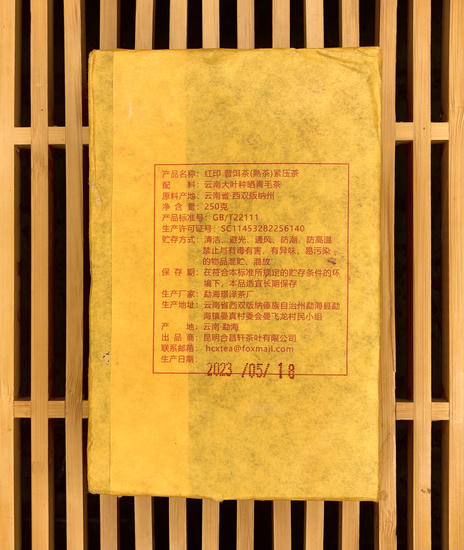 产品名称：红印 普洱茶(熟茶)紧压茶
配 料：云南大叶种晒青毛茶
原料产地：云南省·西双版纳州
净 含 量：250克
产品标准号：GB/T22111
生产许可证号：SC11453282256140
贮存方式：清洁、避光、通风、防潮、防高温
禁止与有毒有害、有异味、易污染
的物品混贮、混放
保 存 期：在符合本标准所规定的贮存条件的环
境下，本品适宜长期保存
生产厂家：勐海璟泽茶厂
生产地址：云南省西双版纳傣族自治州勐海县勐
海镇曼真村委会曼飞龙村民小组
产 地：云南·勐海
出 品 商：昆明合昌轩茶叶有限公司
联系邮箱：hcxtea@foxmail.com
生产日期：
2023 /05/ 18